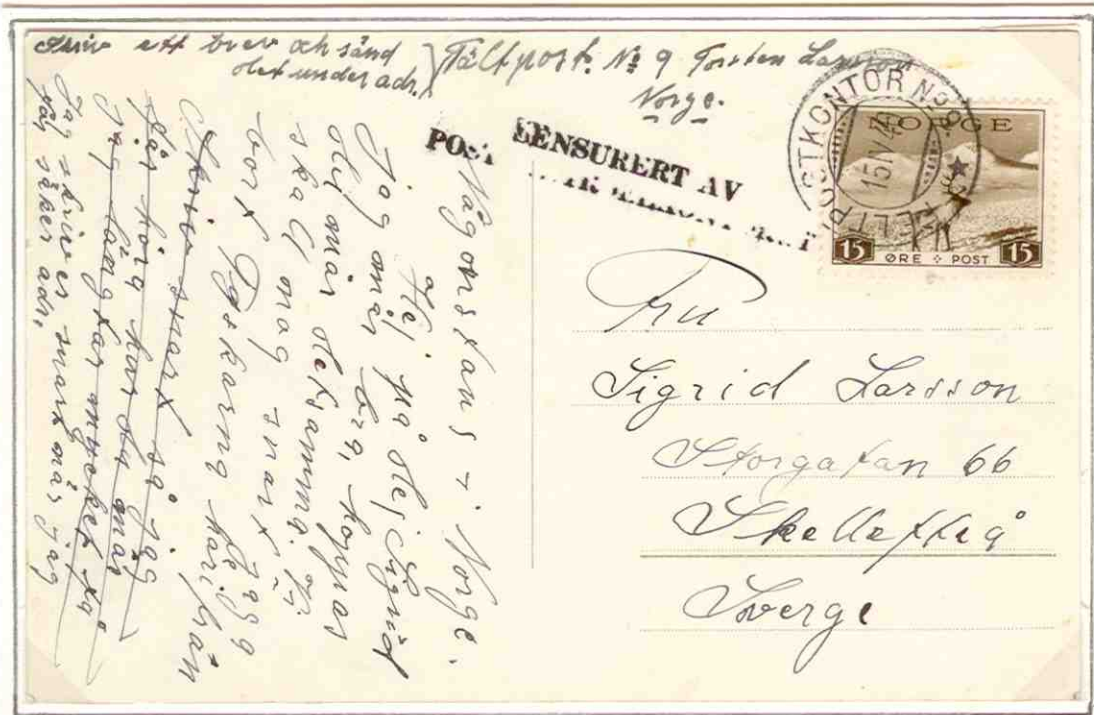 Skriv ett brev och sänd
det under adr.
Fältpost. No 9 Torsten Larsson
Norge.
POST CENSURERT AV
FELTPOSTKONTOR No 9
15 IV 40
NORGE
15 ØRE POST 15
Någonstans i Norge.
Hej på dej Sigrid
Jag mår bra, hoppas
dej mår detsamma. Vi
skall nog snart få
bort Tyskarna härifrån
Skriv snart så jag
får höra hur du mår
jag längtar mycket få
Jag skriver snart när jag
får säker adr.
Fru
Sigrid Larsson
Storgatan 66
Skellefteå
Sverge